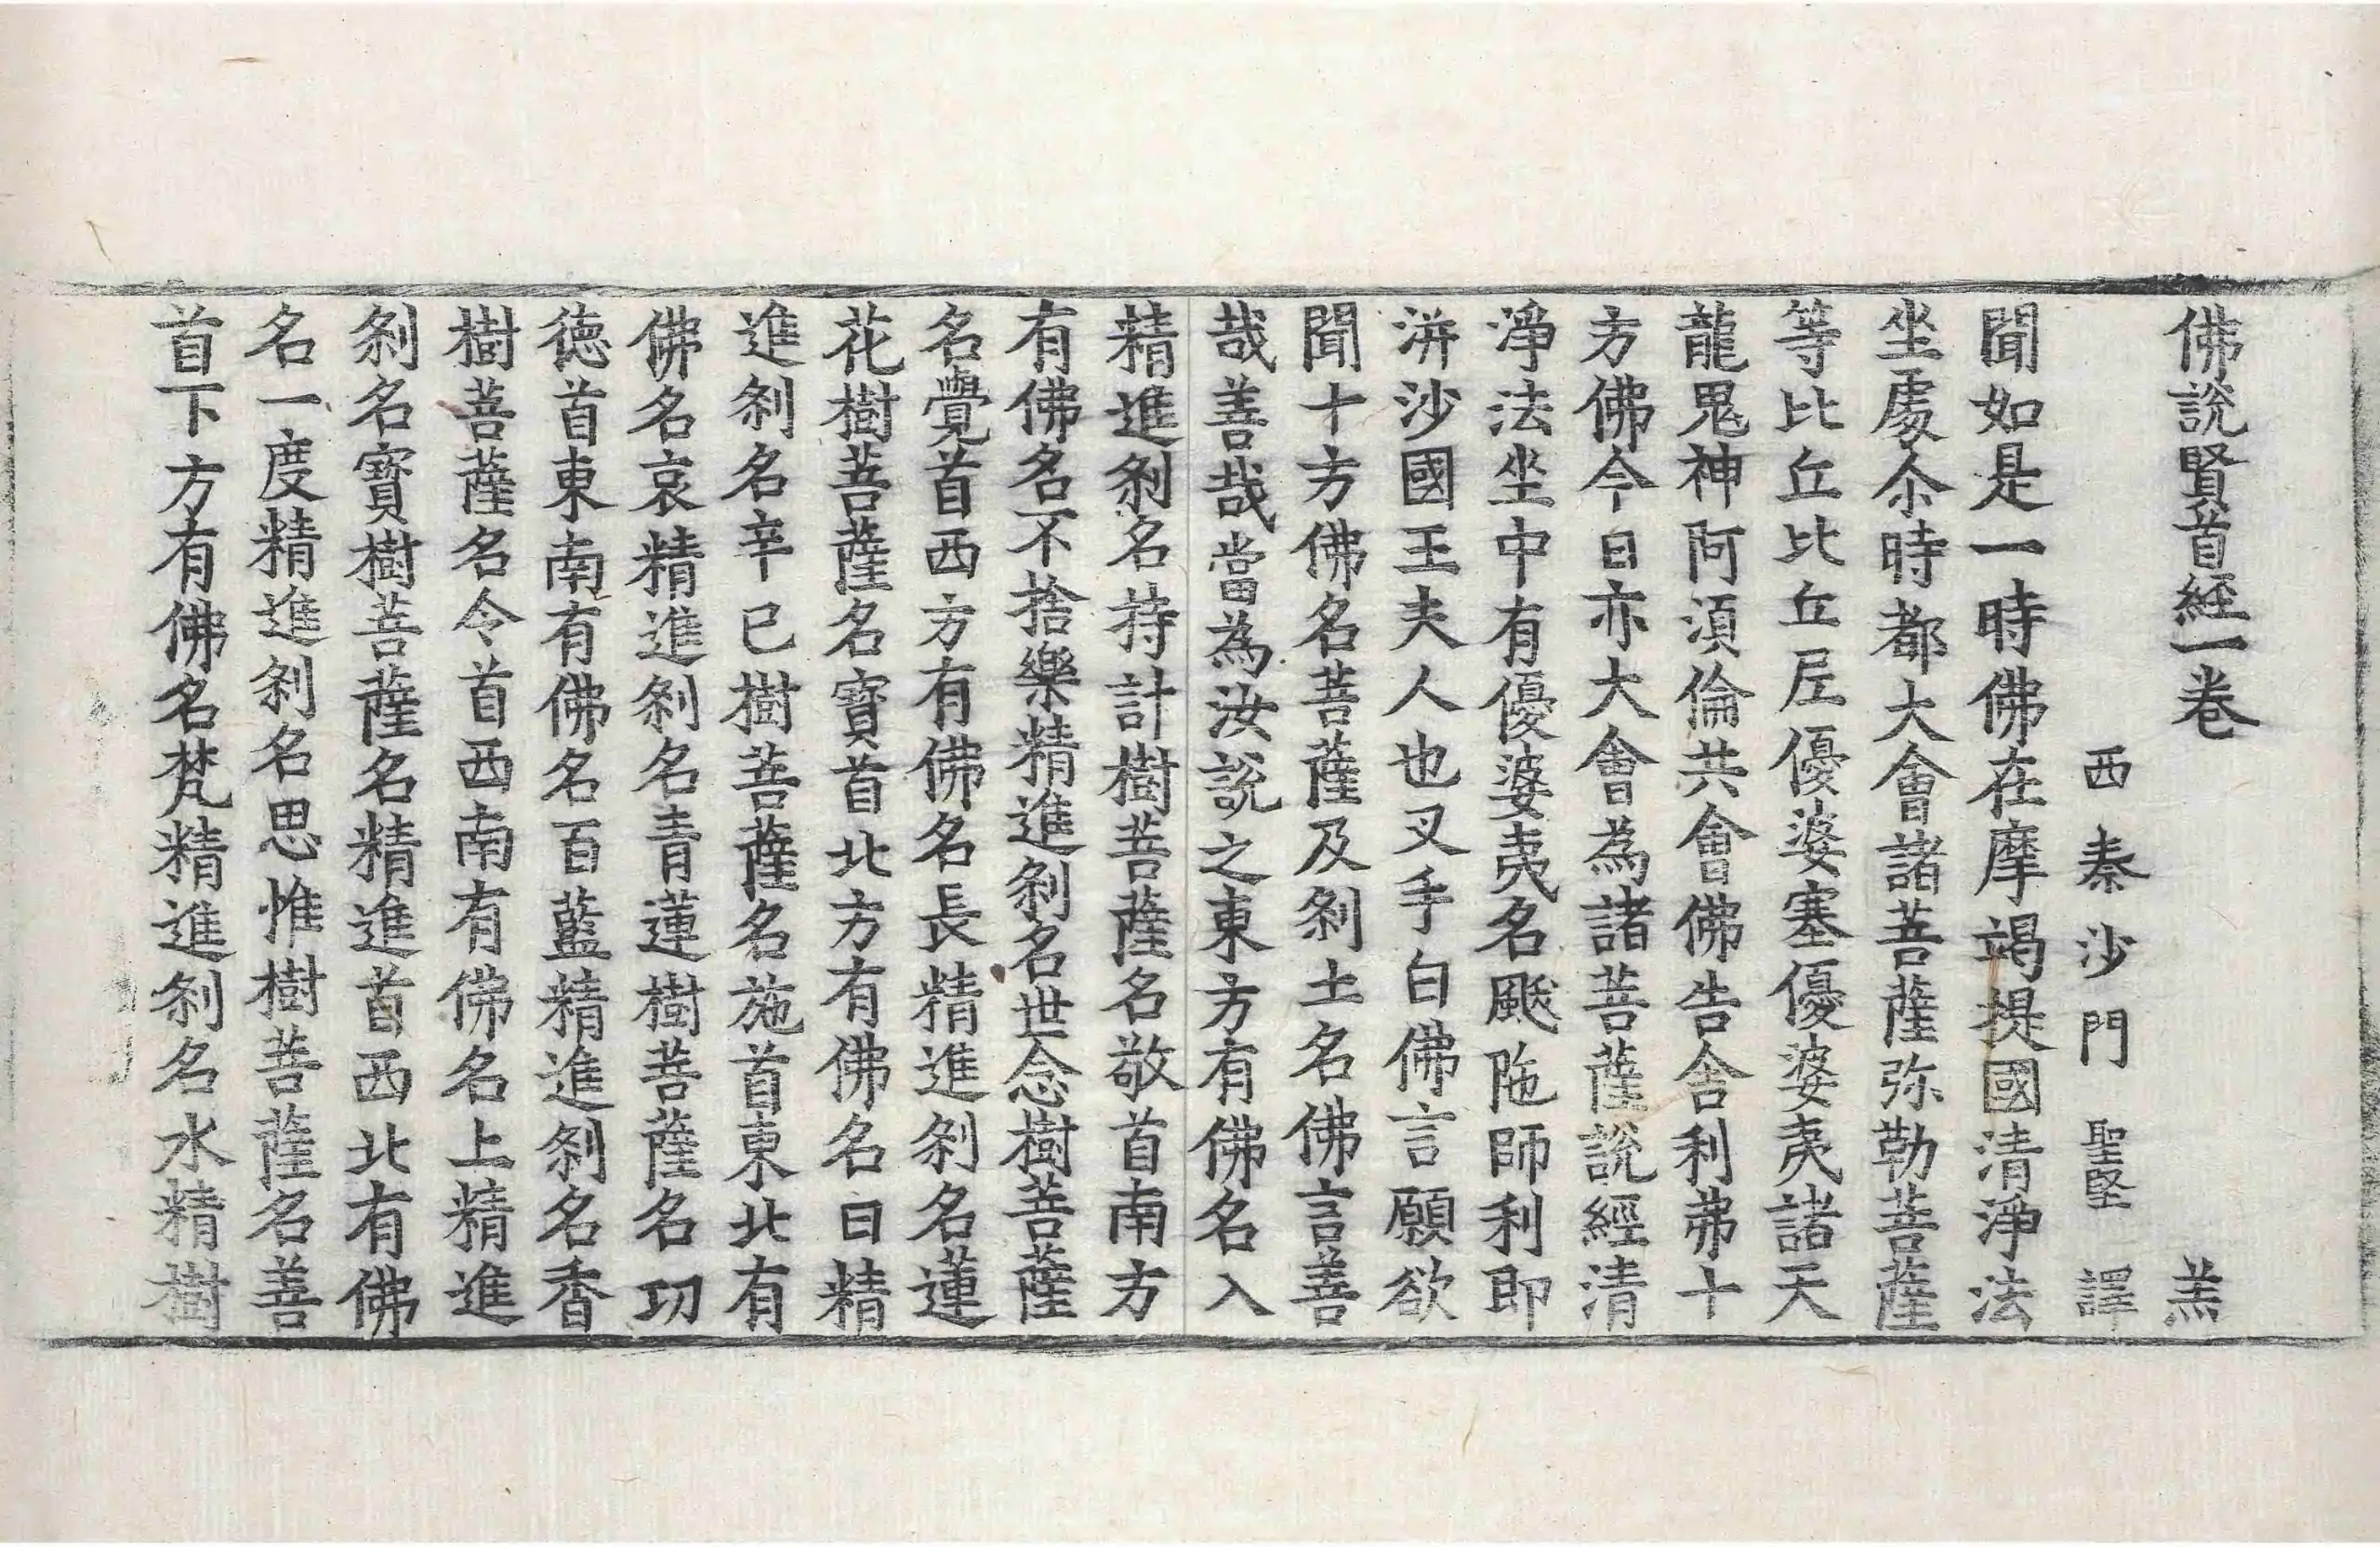 佛說賢首經一卷 羔
西秦沙門聖堅譯
聞如是一時佛在摩竭提國清淨法
坐處尒時都大會諸菩薩弥勒菩薩
等比丘比丘尼優婆塞優婆夷諸天
龍鬼神阿須倫共會佛告舍利弗十
方佛今日亦大會為諸菩薩說經清
淨法坐中有優婆夷名颰陁師利即
洴沙國王夫人也叉手白佛言願欲
聞十方佛名菩薩及剎土名佛言善
哉善哉當為汝說之東方有佛名入
精進剎名持計樹菩薩名敬首南方
有佛名不捨樂精進剎名世念樹菩薩
名覺首西方有佛名長精進剎名蓮
花樹菩薩名寶首北方有佛名日精
進剎名辛已樹菩薩名施首東北有
佛名哀精進剎名青蓮樹菩薩名功
德首東南有佛名百藍精進剎名香
樹菩薩名令首西南有佛名上精進
剎名寶樹菩薩名精進首西北有佛
名一度精進剎名思惟樹菩薩名善
首下方有佛名梵精進剎名水精樹